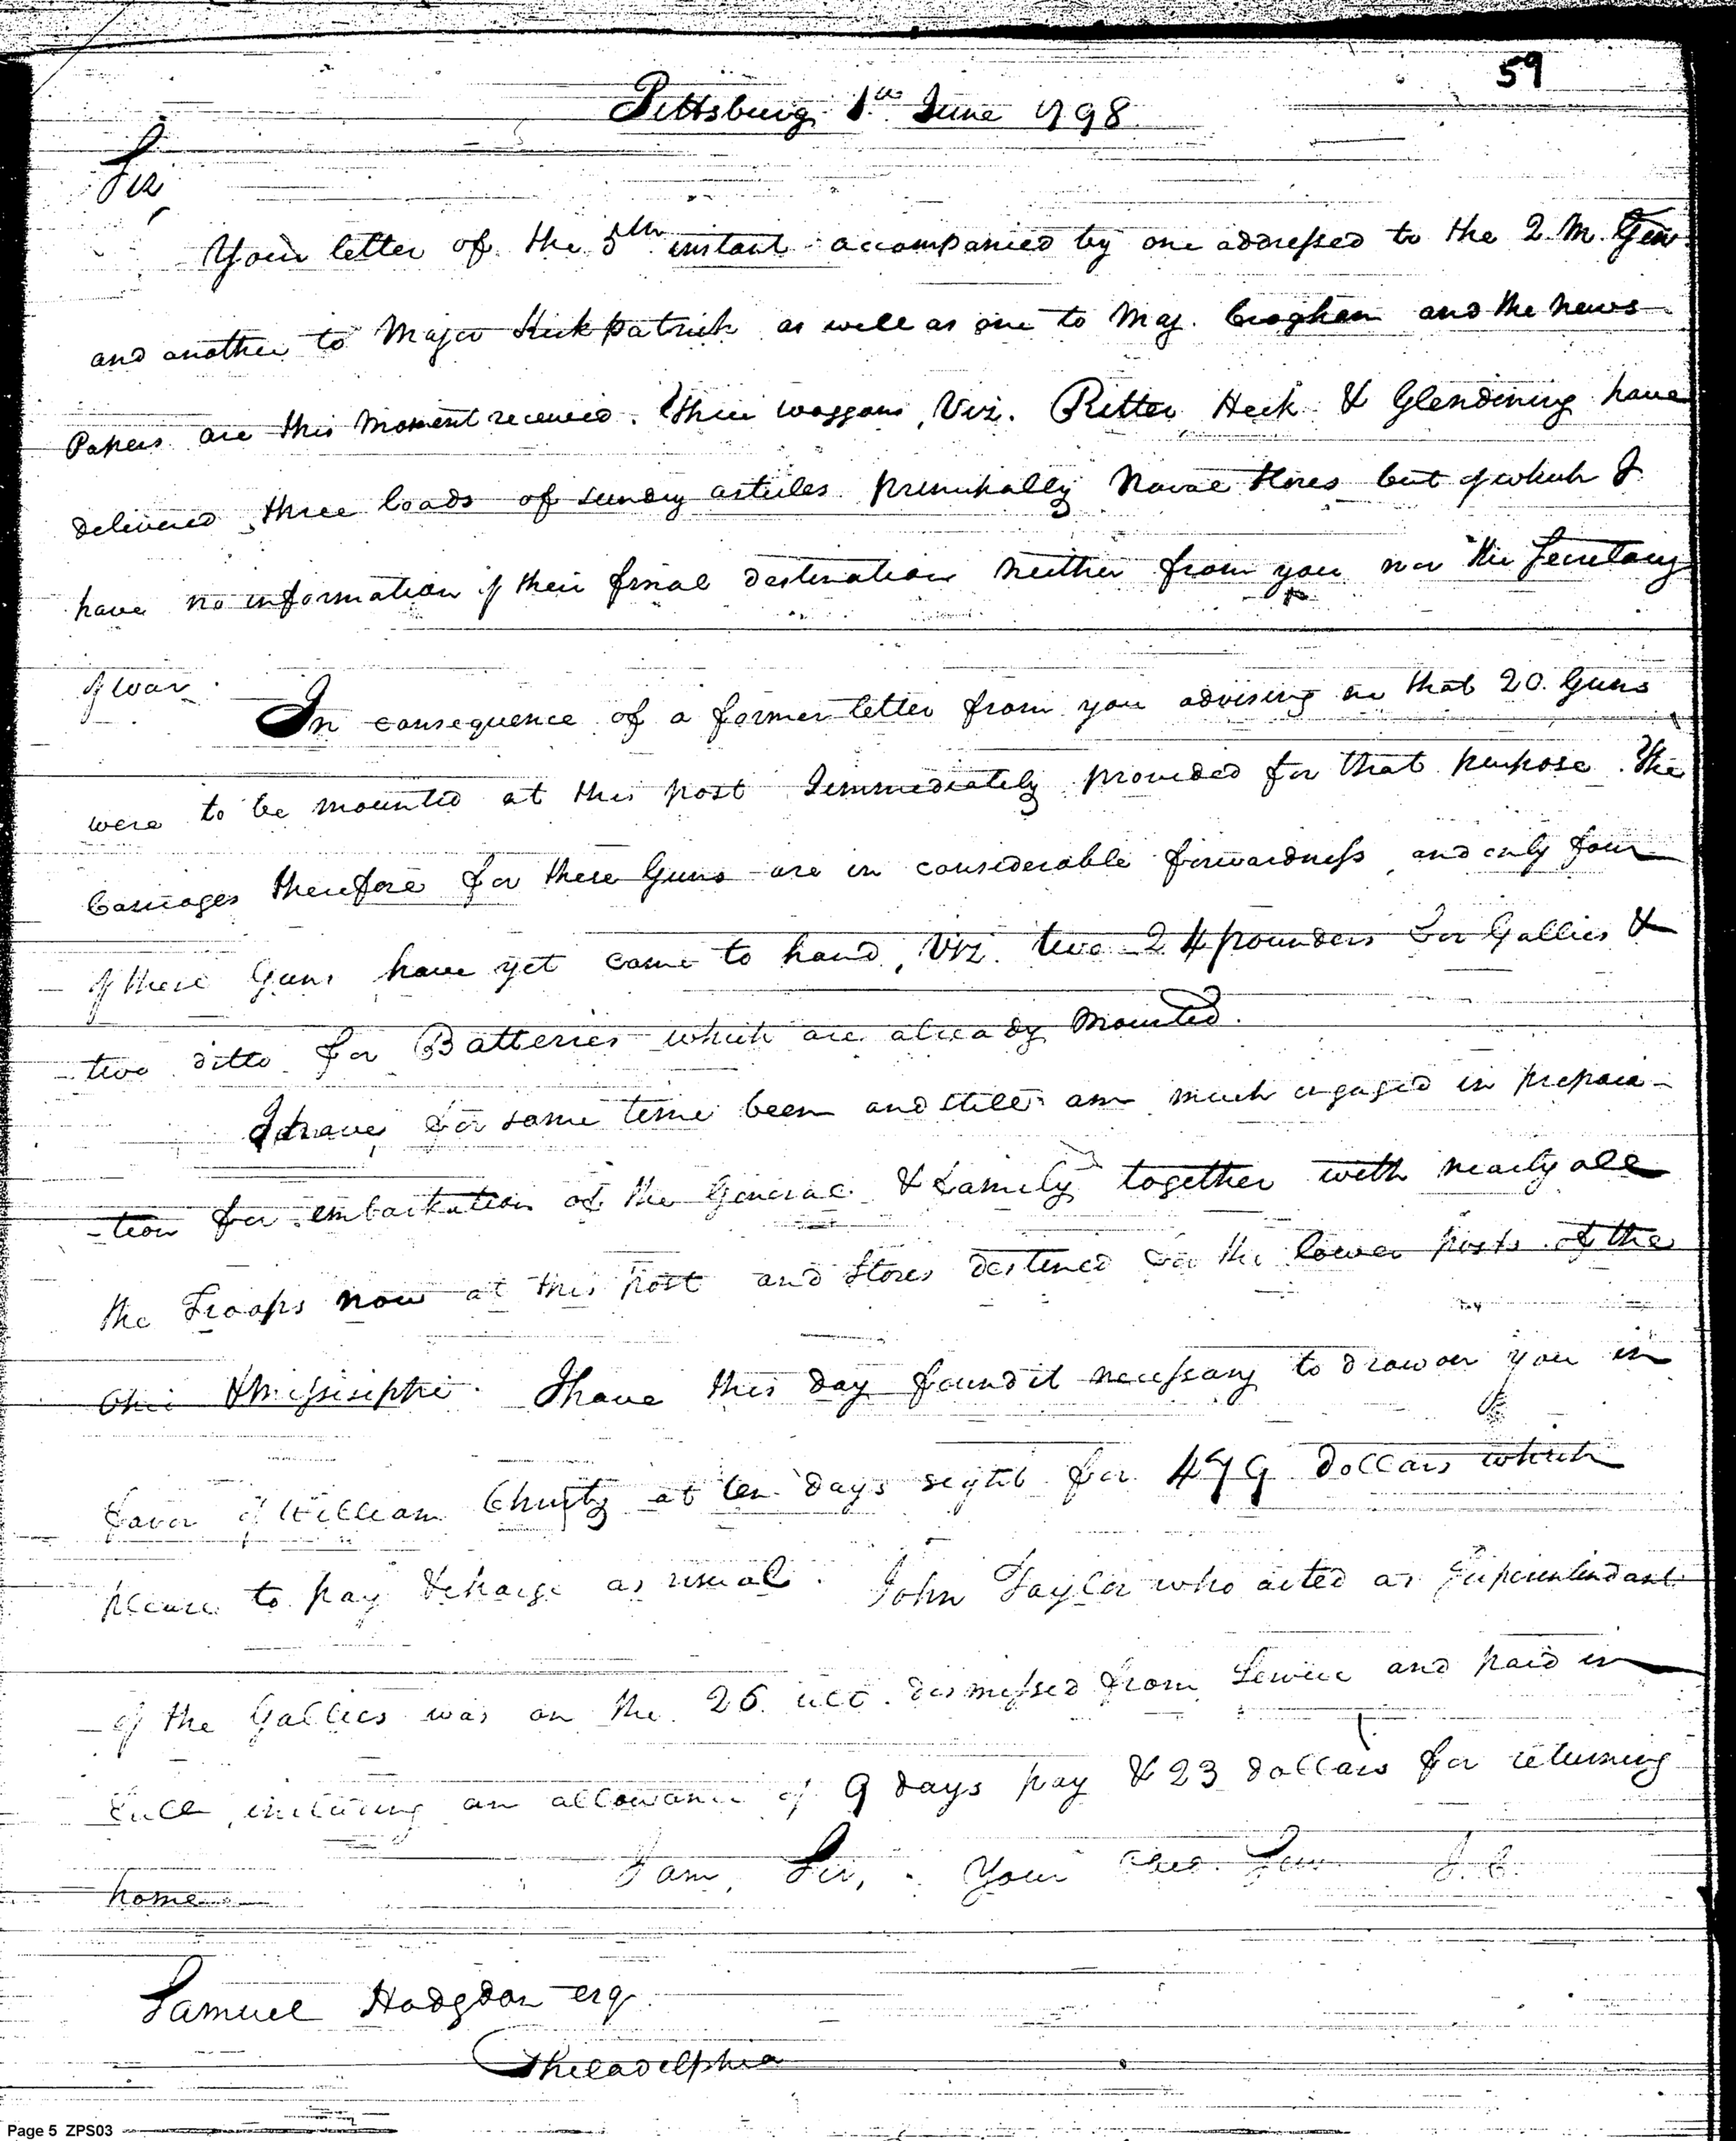 59
Pittsburg 1st June 1798
Sir,
Your letter of the 5th instant accompanied by one addressed to the Q. M. Gen
and another to Major Kirkpatrick as well as one to Maj. Croghan and the news
Papers are this moment received. Three waggons, Viz. Ritter Heck & Glendining have
delivered three loads of sundry articles principally Naval Stores but of which I
have no information of their final destination neither from you nor the Secretary
of War.
In consequence of a former letter from you advising me that 20 Guns
were to be mounted at this post I immediately provided for that purpose. The
Carriages therefore for these Guns are in considerable forwardness, and only four
of these Guns have yet come to hand, Viz. two 24 pounders for Gallies &
two ditto for Batteries which are already mounted.
I have, for some time been and still am much engaged in prepara-
-tion for embarkation of the General & family together with nearly all
the Troops now at this post and Stores destined for the lower posts of the
Ohio & Missisiphi. I have this day found it necessary to draw on you in
favor of William Christy at ten days sight for 479 dollars which
please to pay & charge as usual. John Taylor who acted as Superintendant
of the Gallies was on the 26 ult. dismissed from Service and paid in
full, including an allowance of 9 days pay & 23 dollars for returning
home
I am, Sir, Your
Samuel Hodgdon esq.
Philadelphia
Page 5 ZPS03